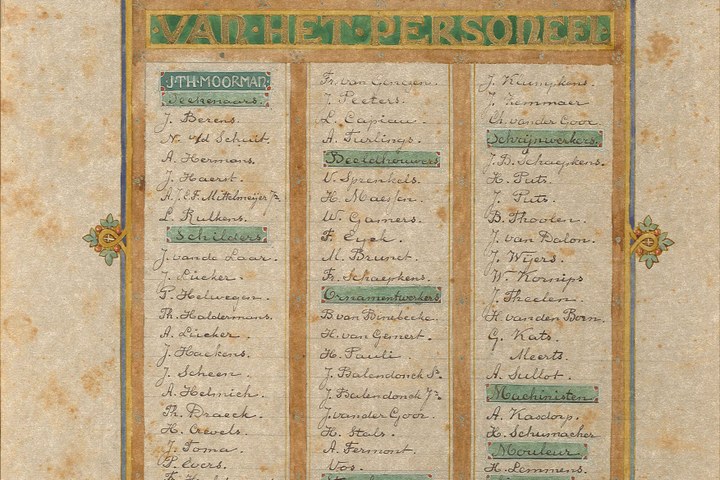 VAN·HET·PERSONEEL
J·TH·MOORMAN
Teekenaars.
J. Berens.
N. v/d Schuit.
A. Hermans.
J. Haerst.
A.J.E.F. Mittelmeijer Jr.
L. Rulkens.
Schilders.
J. van de Laar.
J. Lücker.
P. Helwegen.
Th. Haldermans.
A. Lücker.
J. Hackens.
J. Scheen.
A. Helmich.
Th. Braeck.
H. Crevels.
J. Toma.
P. Evers.
Fr. van
J. Peeters.
L. Capieau.
A. Turlings.
Beeldhouwers
V. Sprenkels.
H. Maessen.
W. Gamers.
F. Eyck.
M. Brunet.
Fr. Schaepkens.
Ornamentwerkers
B van Binebecke.
H. van Gemert.
H. Pauli.
J. Balendonck Sr.
J. Balendonck Jr.
J. van der Goor.
H. Stals.
A. Fermont.
Vos.
J. Kruijpkens.
J. Lammaer
Ch. van der Goor.
Schrijnwerkers.
J.B. Schaepkens.
H. Puts.
J. Puts.
B. Thoolen.
J. van Dalon.
J. Wijers.
W. Kornips
J. Theelen.
H. van den Born.
G. Kats.
Meerts.
A. Sullot.
Machinisten.
A. Kasdorp.
H. Schumacher
Mouleur
H. Lemmens.